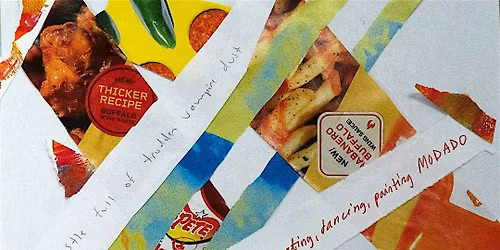 NEW!
THICKER
RECIPE
BUFFALO
WING SAUCE
full of trodden vampire dust
NEW!
HABANERO
BUFFALO
WING SAUCE!
PETE
ting, dancing, painting MODADO